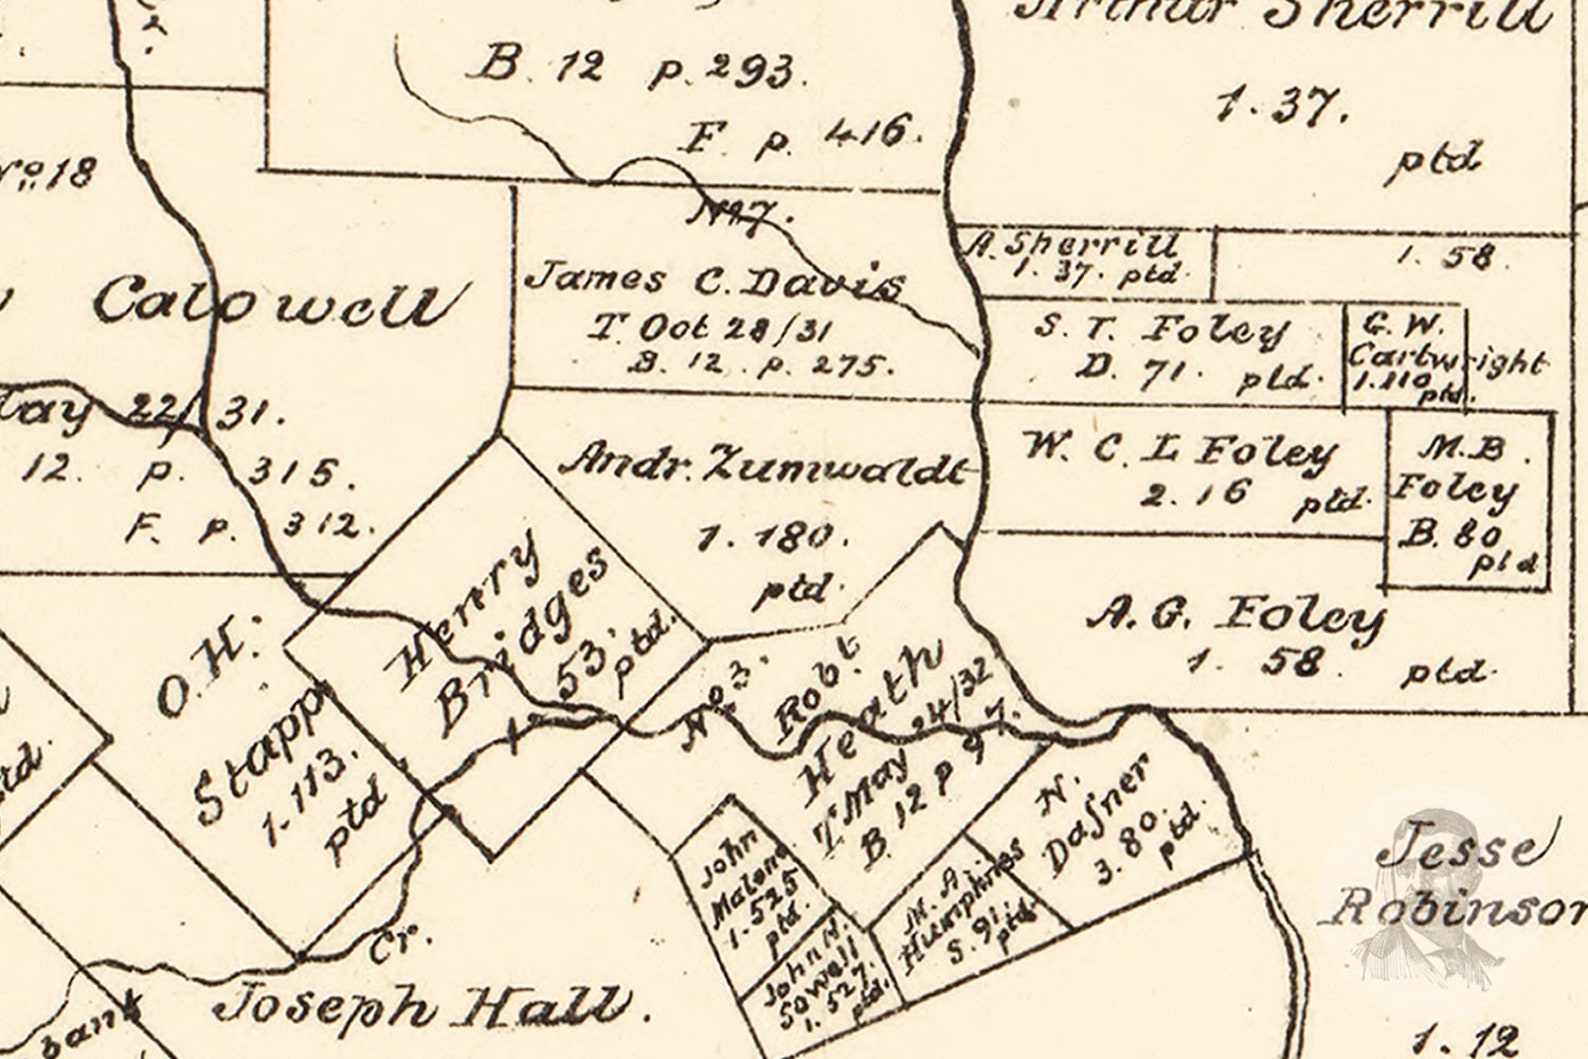 B. 12 p. 293.
F. p. 416.
Arthur Sherrill
1. 37.
ptd
No. 18
No 7.
James C. Davis
T. Oct 28/31
B. 12. p. 275.
A. Sherrill
1. 37. ptd.
1. 58.
S. T. Foley
D. 71. ptd.
G. W.
Cartwright
1. 110
ptd.
Calowell
22/31.
12. p. 315.
F. p. 312.
Andr. Zumwaldt
1. 180.
ptd.
W. C. L Foley
2. 16 ptd.
M. B.
Foley
B. 80
ptd
A. G. Foley
1. 58. ptd.
Henry
Bridges
1. 53.
ptd.
O. H.
Stapp.
1. 113.
ptd
No 3.
Robt.
Heath
T. May 24/32
B. 12 p 97.
N.
Dafner
3. 80.
ptd.
John
Malone
1. 525
ptd.
John N.
Sowell
1. 527.
ptd.
M. A.
Humphries
S. 91.
ptd.
Jesse
Robinson
1. 12
Cr.
Joseph Hall.